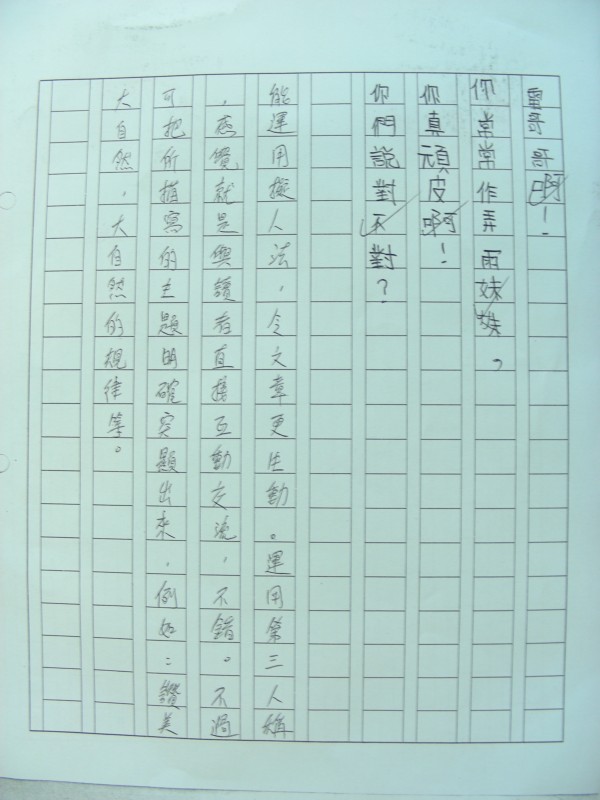 雷哥哥啊！
你常常作弄雨妹妹，
你真頑皮啊！
你們說對不對？
能運用擬人法，令文章更生動。運用第三人稱
，感覺就是與讀者直接互動交流，不錯。不過
可把所描寫的主題明確突顯出來，例如：讚美
大自然，大自然的規律等。